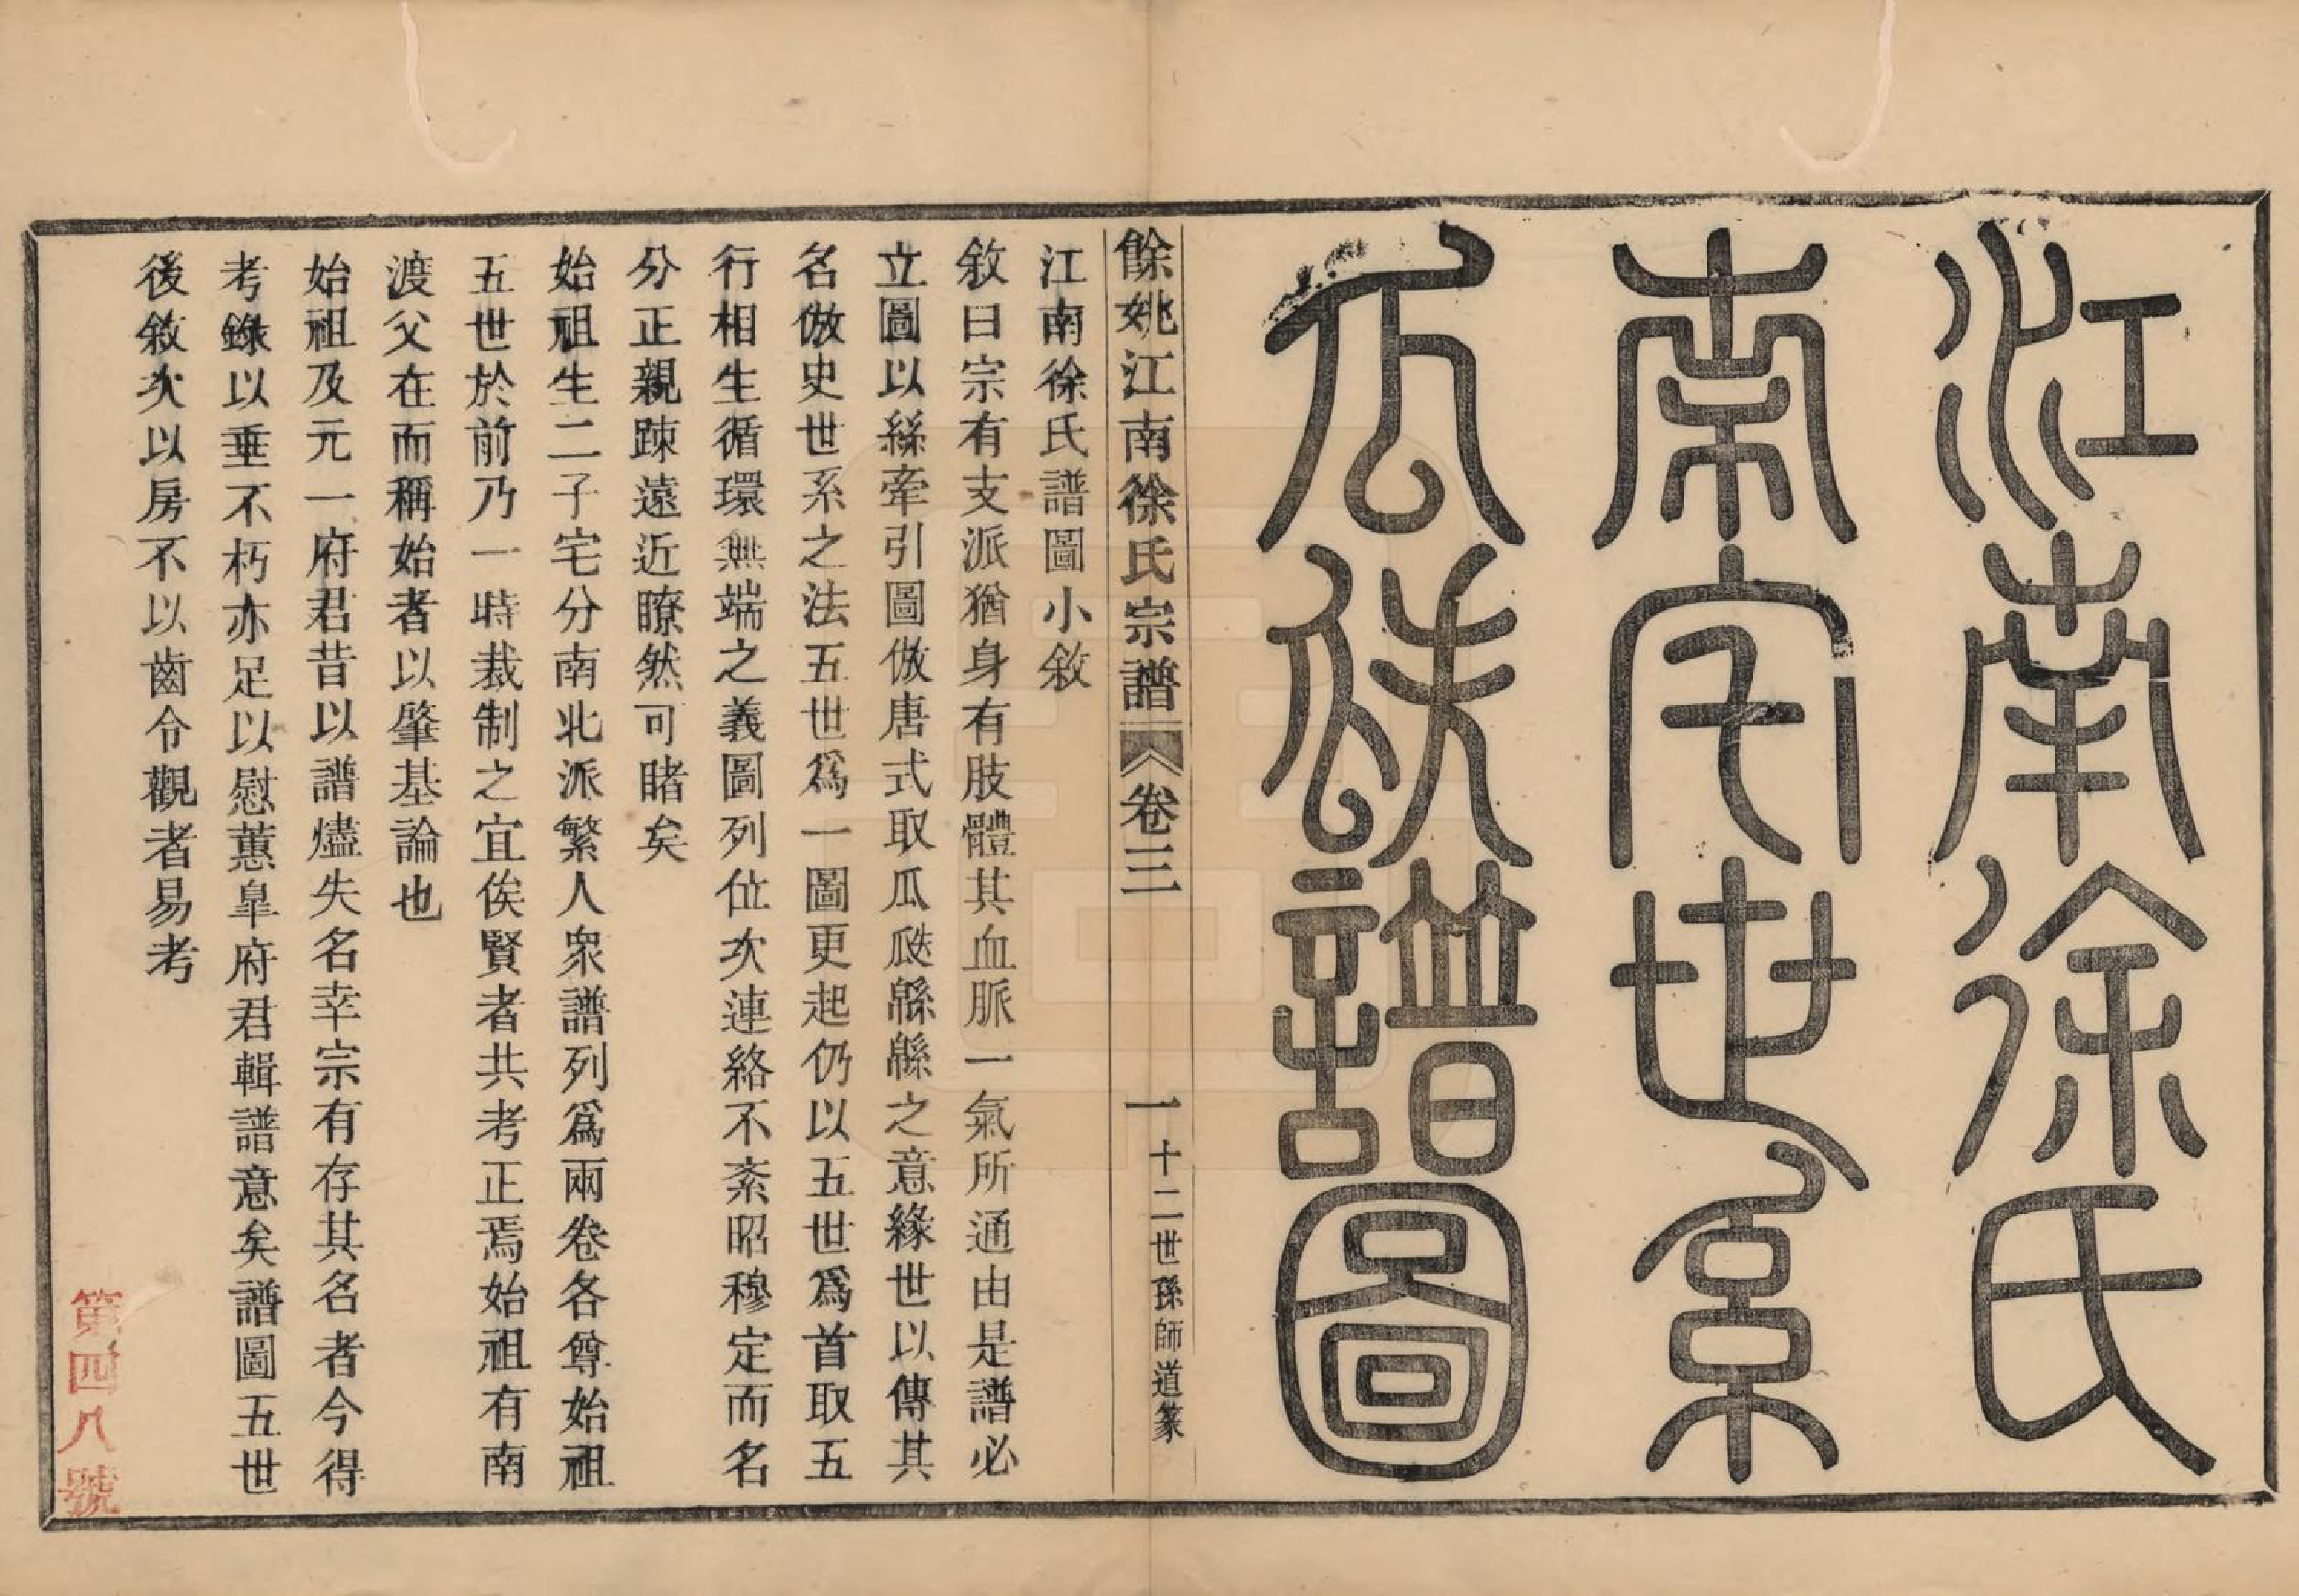 江南徐氏
南宅世系
瓜瓞譜圖
十二世孫師道篆
餘姚江南徐氏宗譜
卷三
一
江南徐氏譜圖小敘
敘曰宗有支派猶身有肢體其血脈一氣所通由是譜必
立圖以絲牽引圖倣唐式取瓜瓞緜緜之意緣世以傳其
名倣史世系之法五世爲一圖更起仍以五世爲首取五
行相生循環無端之義圖列位次連絡不紊昭穆定而名
分正親踈遠近瞭然可睹矣
始祖生二子宅分南北派繁人衆譜列爲兩卷各尊始祖
五世於前乃一時裁制之宜俟賢者共考正焉始祖有南
渡父在而稱始者以肇基論也
始祖及元一府君昔以譜燼失名幸宗有存其名者今得
考錄以垂不朽亦足以慰蕙臯府君輯譜意矣譜圖五世
後敘次以房不以齒令觀者易考
第四八號